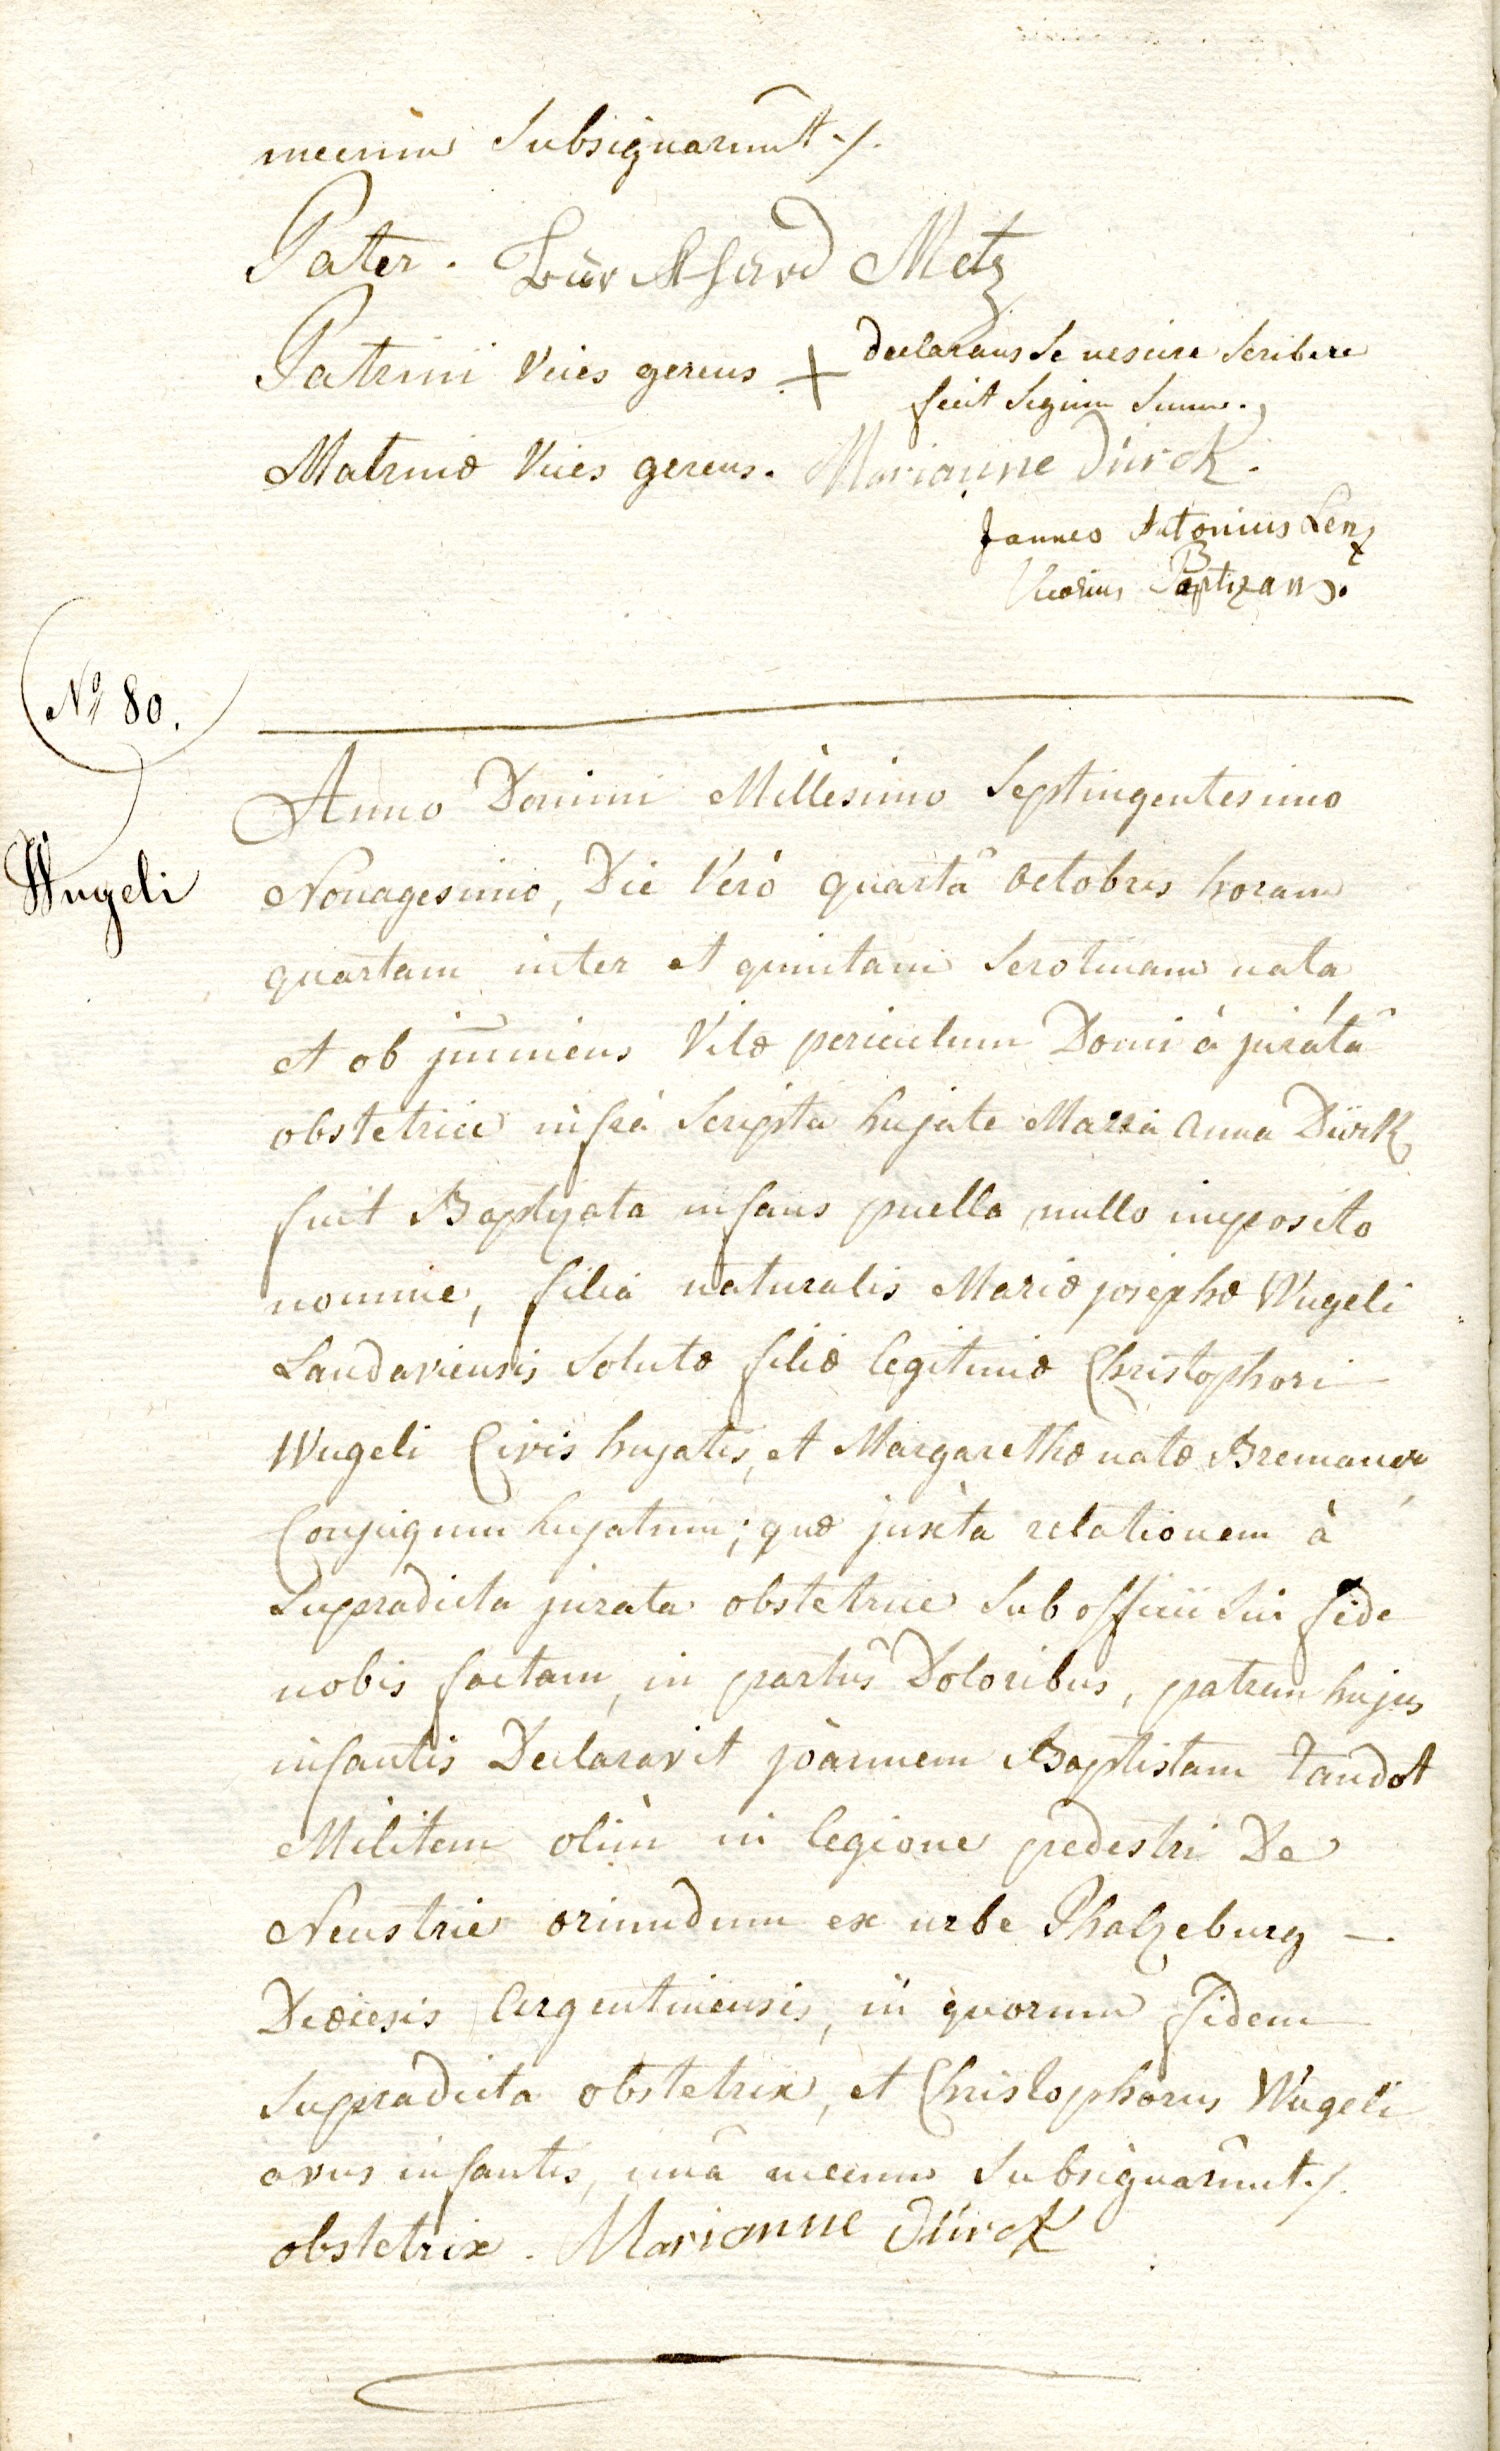 mecum Subsignarunt ./.
Pater. Burckhard Metz
Patrini Vices gerens + declarans se nescire scribere
fecit signum suum.
Matrinæ Vices gerens. Marianne Dürck.
Joannes Antonius Lenz
Vicarius Baptizans.
No 80.
Wugeli
Anno Domini Millesimo Septingentesimo
Nonagesimo, Die Verò quartâ octobris horam
quartam inter et quintam Serotinam nata
et ob im̄inens Vitæ periculum Domi à juratâ
obstetrice infrà Scripta hujate Maria Anna Dürk
fuit Baptizata infans puella nullo imposito
nomine, filia naturalis Mariæ josephæ Wugeli
Landaviensis Solutæ filiæ legitimæ Christophori
Wugeli Civis hujatis, et Margarethæ natæ Bremauer
Conjugum hujatum; quæ juxta relationem à
Supradicta jurata obstetrice Sub officii Sui fide
nobis factam, in partûs Doloribus, patrem hujus
infantis Declaravit joannem Baptistam Tandot
Militem olim in legione pedestri De
Neustrie oriundum ex urbe Phalzeburg —
Diœcesis Argentinensis, in quorum fidem
Supradicta obstetrix, et Christophorus Wugeli
avus infantis, unâ mecum Subsignarunt ./.
obstetrix. Marianne Dürck